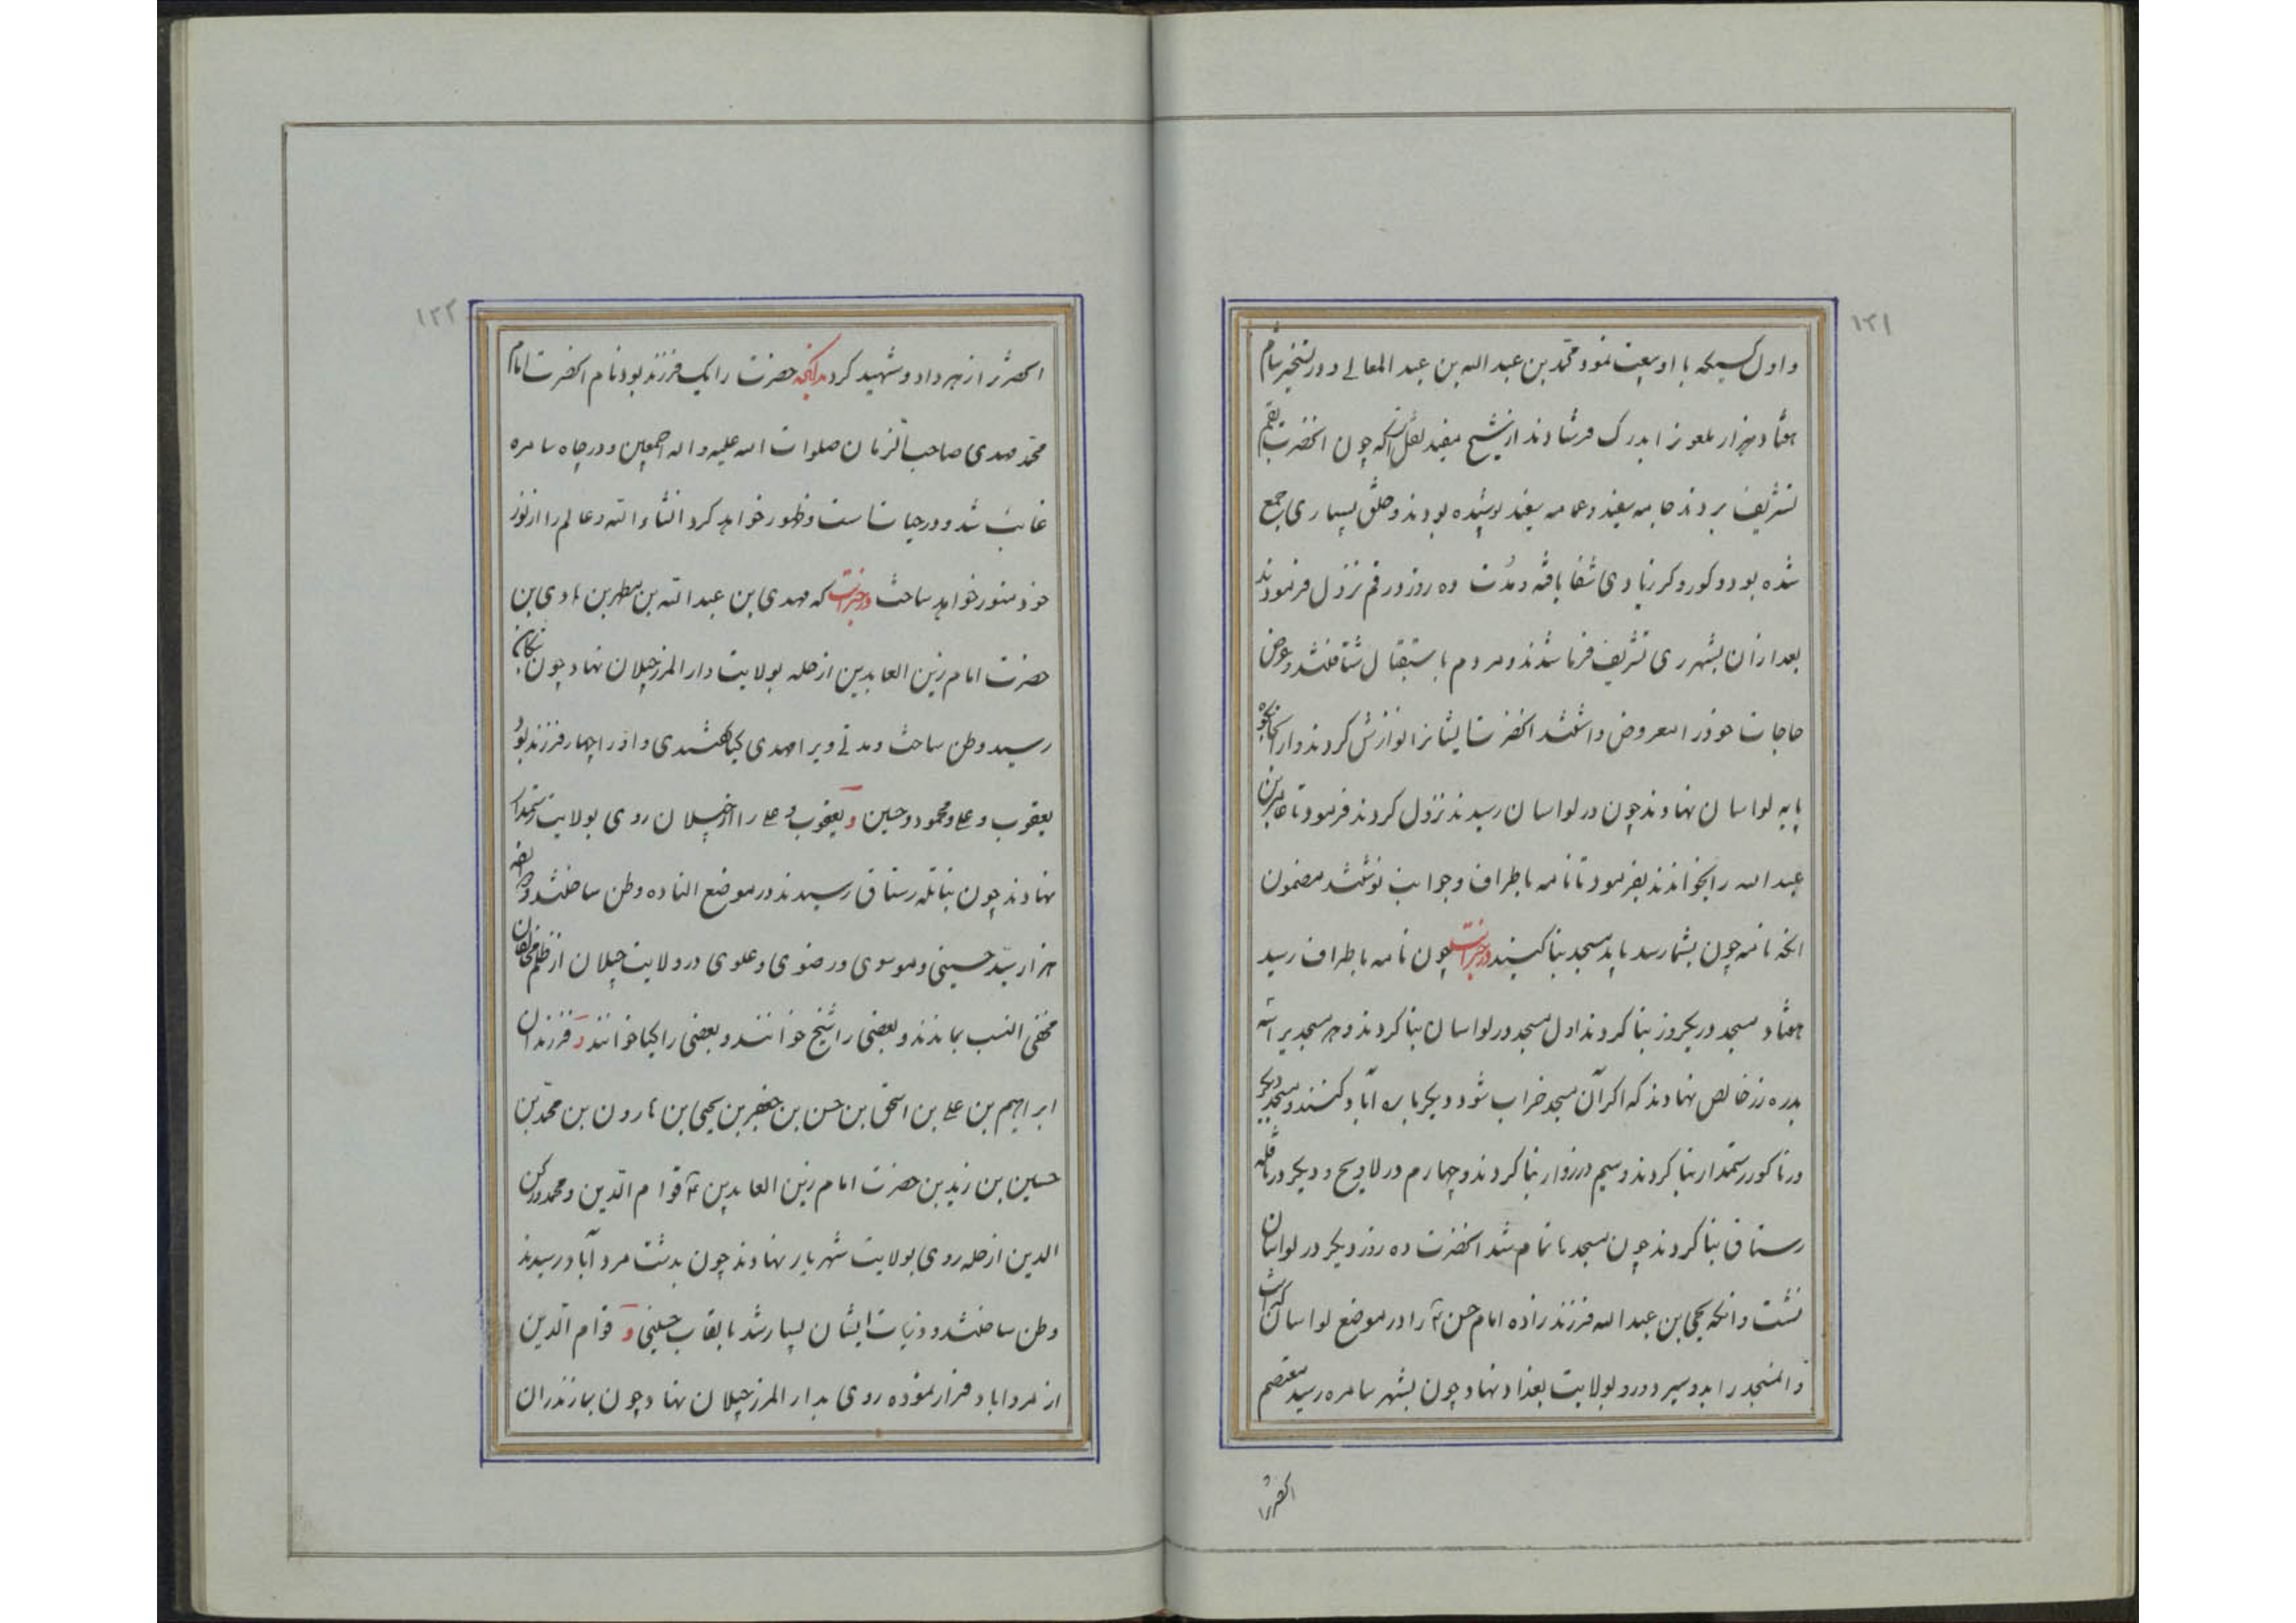 ۱۲۱
و اول کسیکه با او بیعت نمود محمد بن عبد الله بن عبد المعالی و در تسخیر شام
هفتاد هزار ملعونرا بدرک فرستادند از شیخ مفید نقل است که چون انحضرت بقم
تشریف بردند جامه سفید و عمامه سفید پوشیده بودند و خلق بسیاری جمع
شده بود و کور و کر زیادی شفا یافته و مدت ده روز در قم نزول فرمودند
بعد ازان بشهر ری تشریف فرما شدند و مردم باستقبال شتافتند و عرض
حاجات خود را معروض داشتند انحضرت ایشانرا نوازش کردند و از انجا
پا به لواسان نهادند چون در لواسان رسیدند نزول کردند فرمود تا جابر بن
عبد الله را بخواندند بفرمود تا نامه باطراف و جوانب نوشتند مضمون
انکه نامه چون بشما رسد باید مسجد بنا کنید در خبر است چون نامه باطراف رسید
هفتاد مسجد در یکروز بنا کردند اول مسجد در لواسان بنا کردند و هر مسجد برا
بدره زر خالص نهادند که اکر آن مسجد خراب شود دیکر باره آباد کنند و مسجد دیکر
در نا کور رستمدار بنا کردند و سیم در زوار بنا کردند و چهارم در لاویج و دیکر در ناتله
رستاق بنا کردند چون مسجد ها تمام شد انحضرت ده روز دیکر در لواسان
نشست و انکه یحیی بن عبد الله فرزند زاده امام حسن ع را در موضع لواسان کذاشت
و المسجد را بدو سپرد و رو بولایت بغداد نهاد چون بشهر سامره رسید معتصم
انحضرترا
۱۲۲
انحضرترا زهر داد و شهید کردند انحضرت را یک فرزند بود نام انحضرت امام
محمد مهدی صاحب الزمان صلوات الله علیه و اله اجمعین و در چاه سامره
غایب شد و در حیات است و ظهور خواهد کرد انشاء الله و عالم را از نور
خود منور خواهد ساخت در خبر است که مهدی بن عبد الله بن مطهر بن هادی بن
حضرت امام زین العابدین از حله بولایت دار المرز جیلان نهاد چون
رسید وطن ساخت و مدتی ویرا مهدی کیا گفتندی و او را چهار فرزند بود
یعقوب و علی و محمود و حسین و یعقوب و علی را از جیلان روی بولایت رستمدار
نهادند چون بناتله رستاق رسیدند در موضع النا ده وطن ساختند و
هزار سید حسینی و موسوی و رضوی و علوی در ولایت جیلان از ظلم مخالفان
مخفی النسب بماندند و بعضی را شیخ خوانند و بعضی را کیا خوانند و فرزندان
ابراهیم بن علی بن اسحق بن حسن بن جعفر بن یحیی بن هارون بن محمد بن
حسین بن زید بن حضرت امام زین العابدین ع قوام الدین و محمد و رکن
الدین از حله روی بولایت شهریار نهادند چون بدشت مرد آباد رسیدند
وطن ساختند و ذریات ایشان بسیار شد بالقاب حسینی و قوام الدین
از مرداباد فرار نموده روی بدار المرز جیلان نهاد چون بمازندران